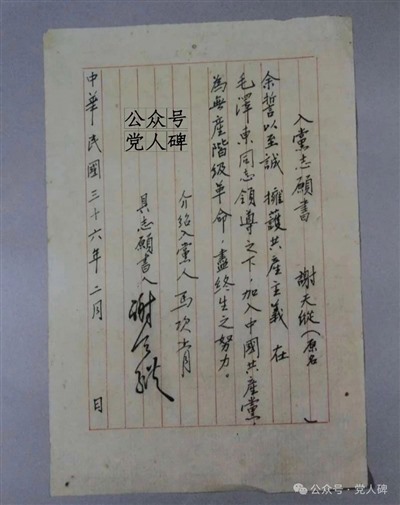 入黨志願書 謝天縱(原名 )
余誓以至誠擁護共產主義在
毛澤東同志領導之下,加入中國共產黨,
為無產階級革命,盡終生之努力。
介紹入黨人 馬次青
具志願書人 謝天縱
中華民國三十六年二月 日
公众号
党人碑
公众号·党人碑